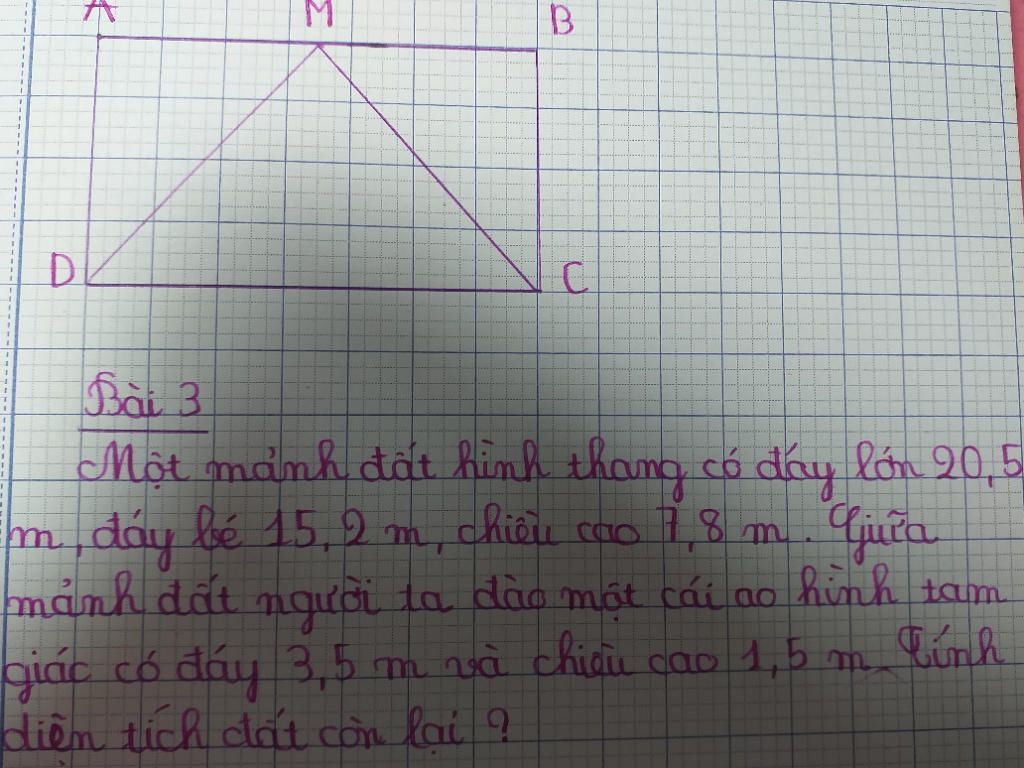 A M B
D C
Bài 3
Một mảnh đất hình thang có đáy lớn 20,5
m, đáy bé 15,2 m, chiều cao 7,8 m. Giữa
mảnh đất người ta đào một cái ao hình tam
giác có đáy 3,5 m và chiều cao 1,5 m. Tính
diện tích đất còn lại ?